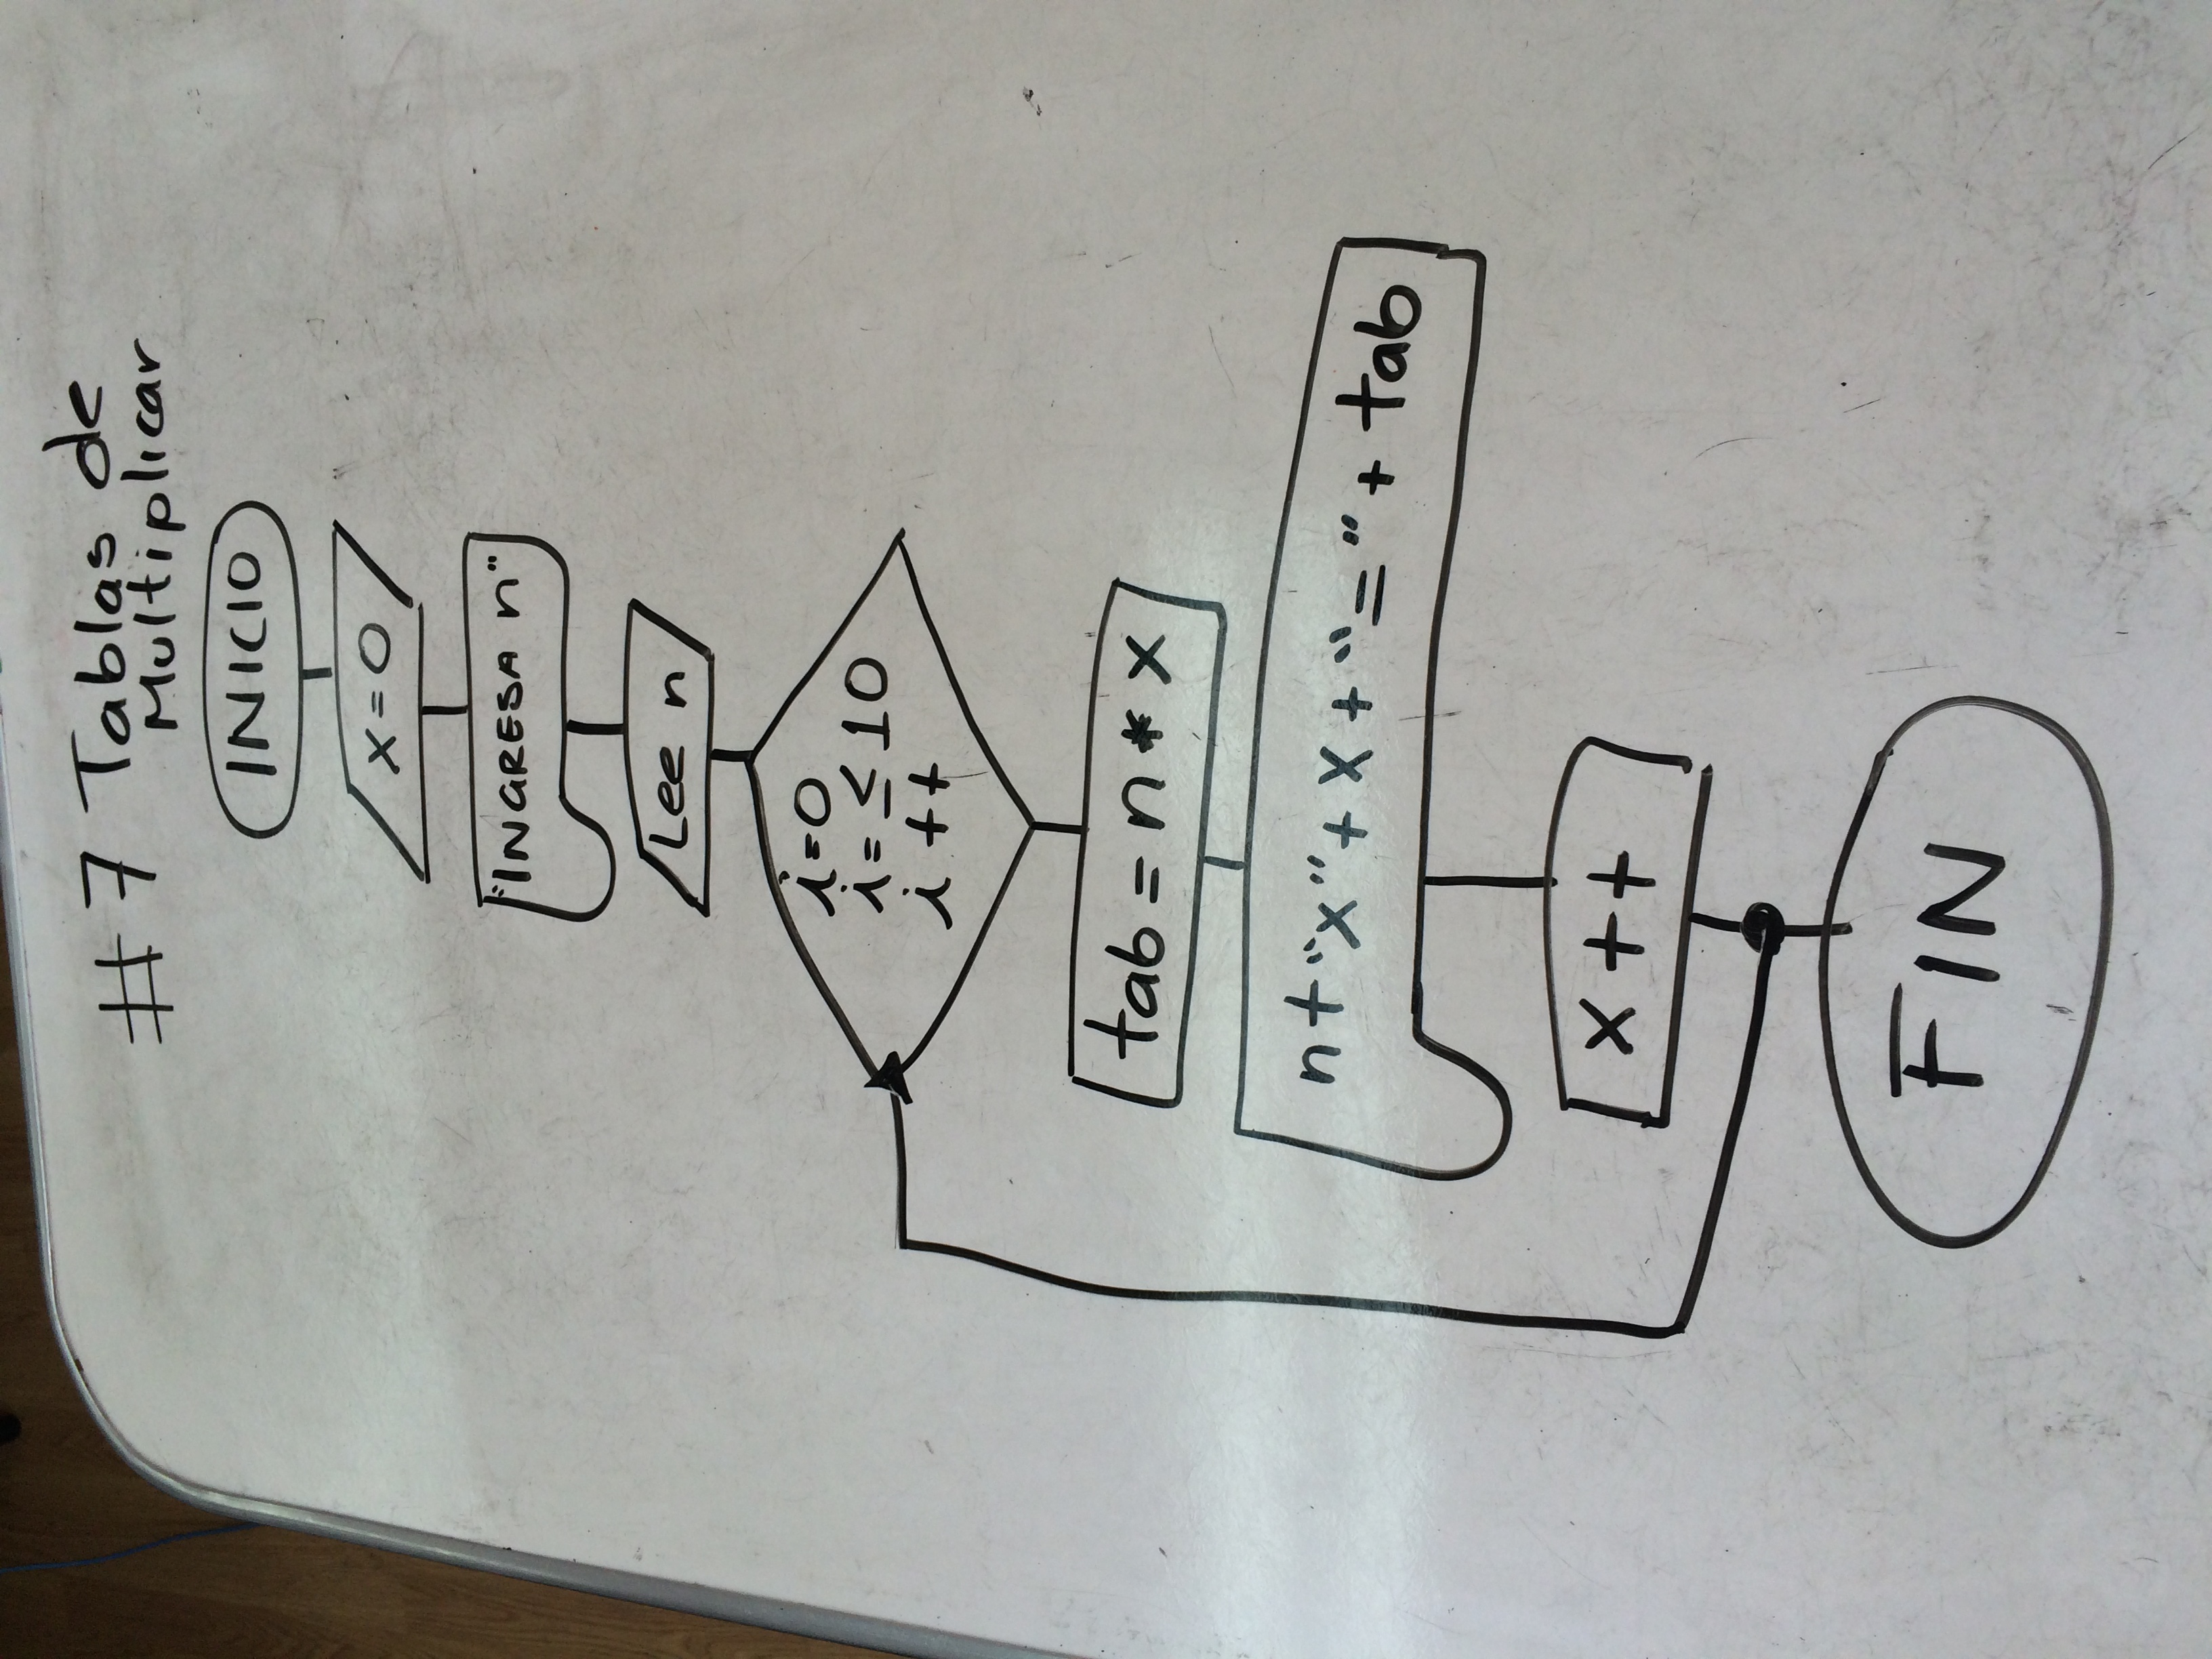 #7 Tablas de
Multiplicar
INICIO
x=0
"INGRESA n"
Lee n
i=0
i=≤10
i++
tab=n*x
n+"x"+x+"="+tab
x++
FIN